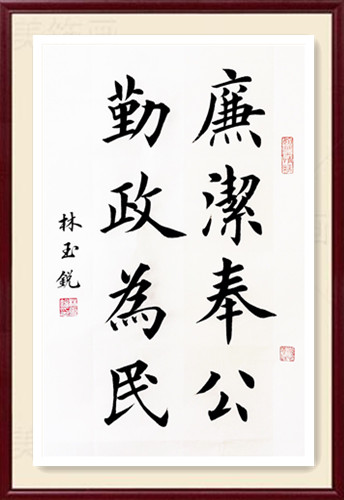 廉潔奉公
勤政為民
林玉銳